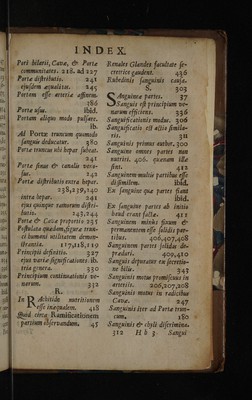 INDEX.
Pori bilarii, Cavæ, & Portæ
communitates. 218. ad 227
Portæ distributio. 241
ejusdem æqualitas. 245
Portam esse arteriæ assinem.
186
Portæ usus. ibid.
Portam aliquo modo pulsare.
ib.
Ad Portæ truncum quomodo
sanguis deducatur. 380
Portæ truncus ubi hepar subeat.
241
Portæ sinus & canalis venosus.
242
Portæ distributio extra hepar.
238,239,240
intra hepar. 241
ejus quinque ramorum distributio.
243,244
Portæ & Cavæ propertio 235
Postulata quædam, figuræ trunci
humani utilitatem demonstrantia.
117,118,119
Principii definitio. 327
ejus variæ significationes. ib.
tria genera. 330
Principium continuationis venarum.
332
R.
In Rachitide nutritionem
esse inæqualem. 418
Quid circa Ramificationum
partium observandum. 45
Renales Glandes facultate secretrice
gaudent. 436
Rubedinis sanguinis causa.
S. 303
Sanguineæ partes. 37
Sanguis est principium venarum
efficiens. 336
Sanguificationis modus. 306
Sanguificatio est actio similaris.
311
Sanguinis primus author, 300
Sanguine omnes partes non
nutriri. 406. quænam illæ
sint. 412
Sanguinem multis partibus esse
dissimilem. ibid.
En sanguine quæ partes fiant
ibid.
En sanguine partes ab initio
haud erant factæ. 411
Sanguinem minùs fixum &
permanentem esse solidis partibus.
406,407,408
Sanguinem parere solidis deprædari.
409,410
Sanguis depuratur ex secretione
bilis. 345
Sanguinis motus promissus in
arteriis. 206,207,208
Sanguinis motus in radicibus
Cavæ. 247
Sanguinis iter ad Portæ truncum.
180
Sanguinis & chyli discrimina.
312 Hh 3 Sangui